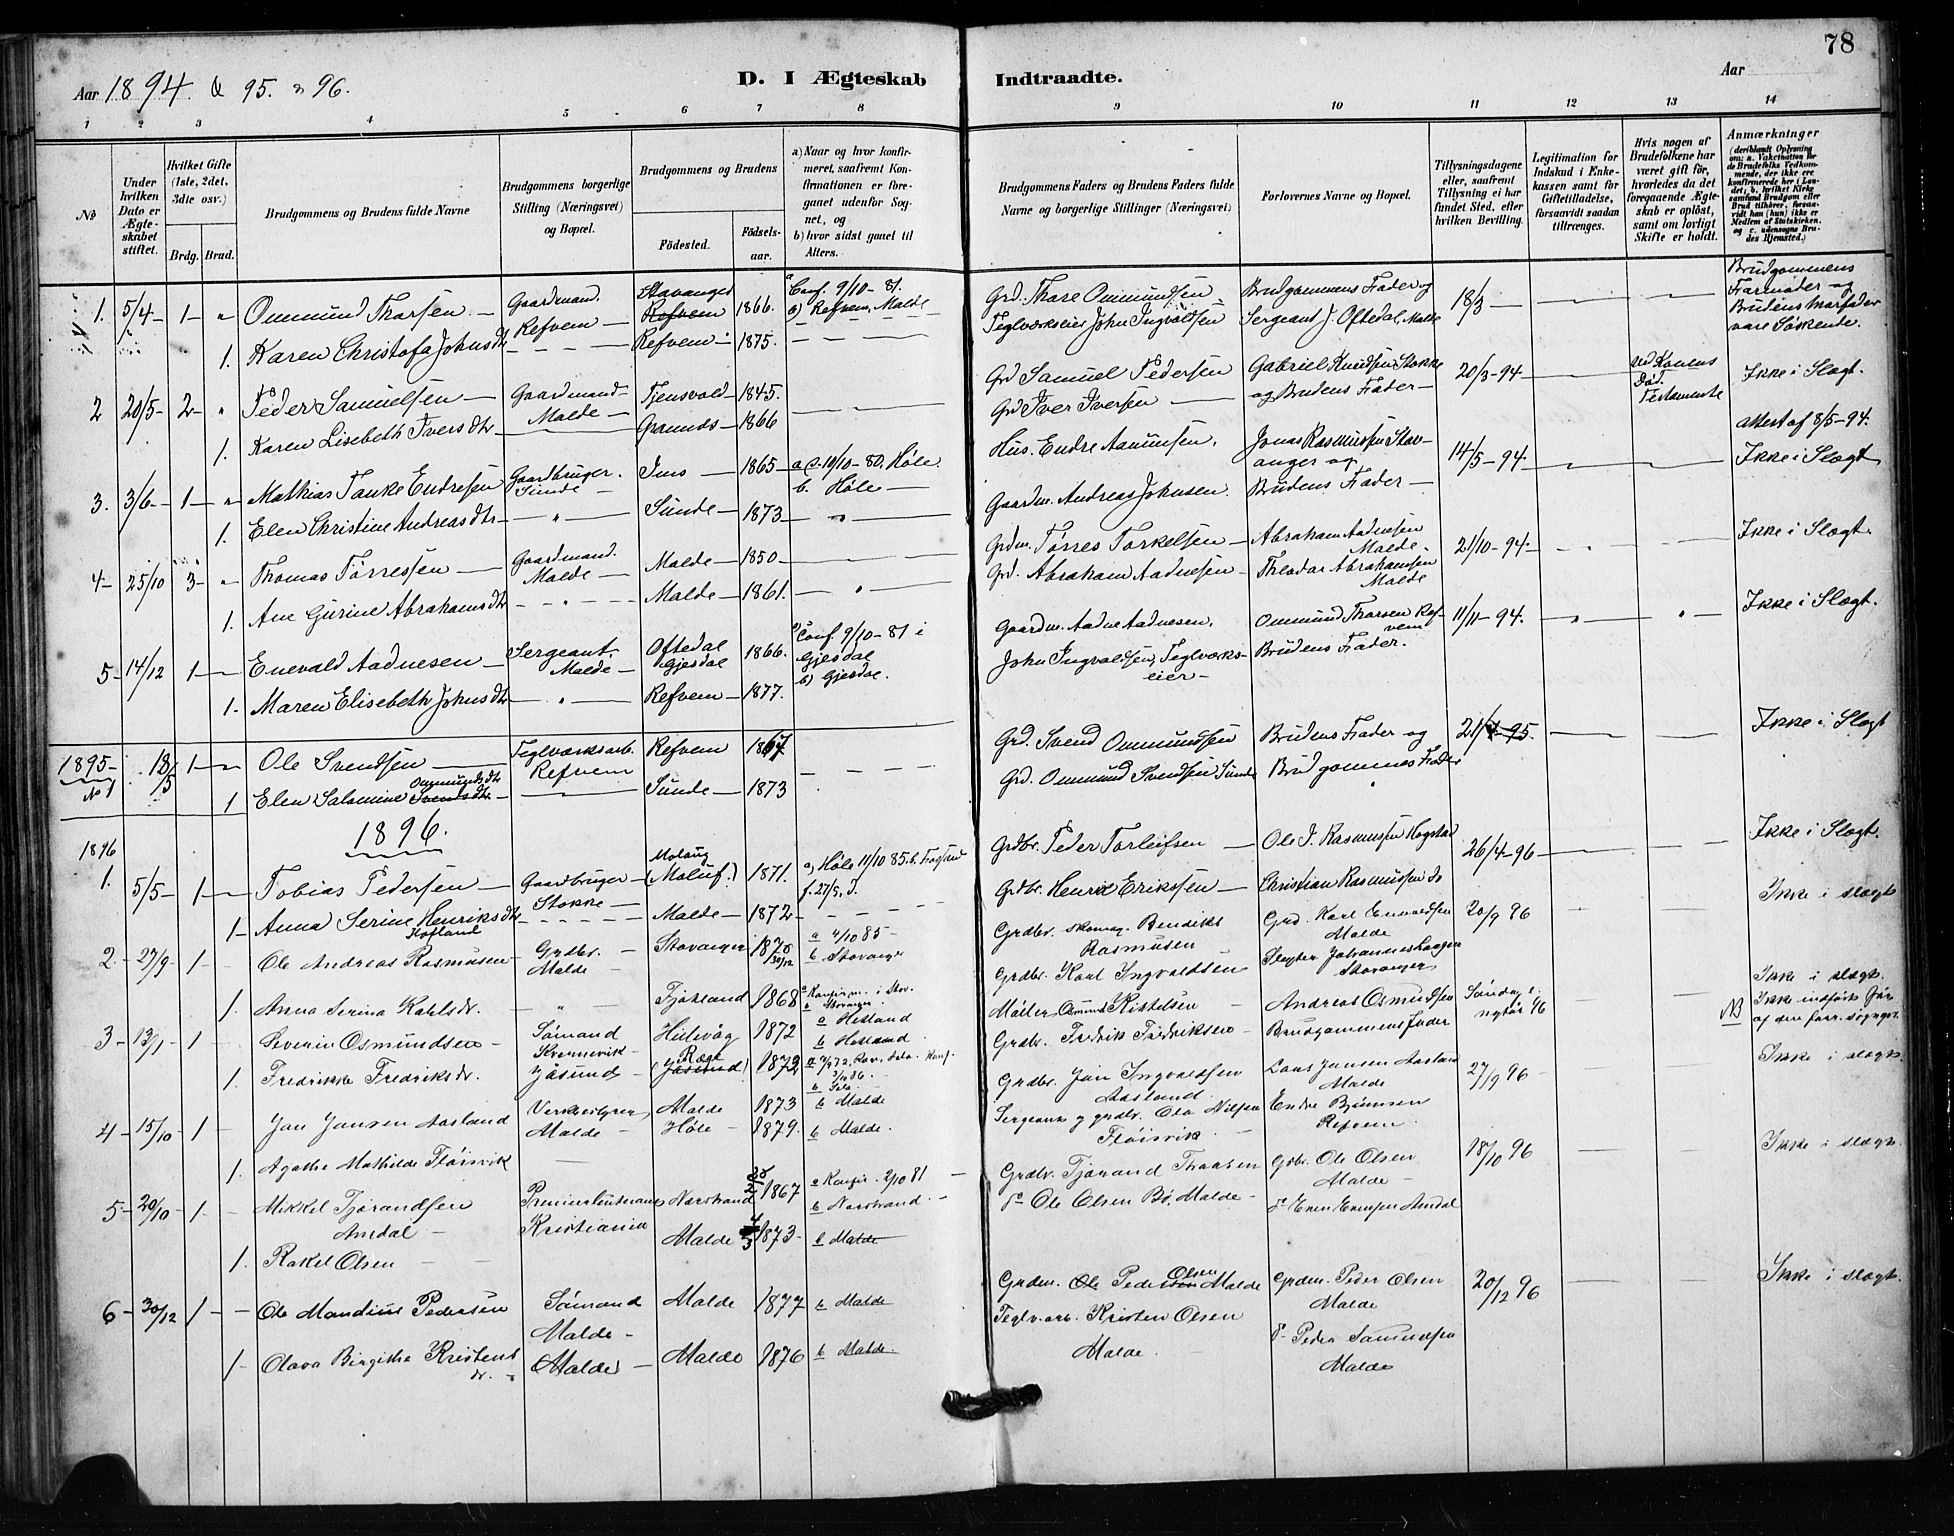 78
Aar 1894 & 95. & 96.
D. I Ægteskab Indtraadte.
Aar
1 2 3 4 5 6 7 8 9 10 11 12 13 14
No
Under hvilken Dato er Ægteskabet stiftet.
Hvilket Gifte (1ste, 2det, 3die osv.)
Brdg. Brud.
Brudgommens og Brudens fulde Navne
Brudgommens borgerlige Stilling (Næringsvei) og Bopæl.
Brudgommens og Brudens
Fødested.
Fødselsaar.
a) Naar og hvor konfirmeret, saafremt Konfirmationen er foregaaet udenfor Sognet, og
b) hvor sidst gaaet til Alters.
Brudgommens Faders og Brudens Faders fulde Navne og borgerlige Stillinger (Næringsvei)
Forlovernes Navne og Bopæl.
Tillysningsdagene eller, saafremt Tillysning ei har fundet Sted, efter hvilken Bevilling.
Legitimation for Indskud i Enkekassen samt for Giftetilladelse, forsaavidt saadan tiltrænges.
Hvis nogen af Brudefolkene har været gift før, hvorledes da det foregaaende Ægteskab er opløst, samt om lovligt Skifte er holdt.
Anmærkninger (deriblandt Oplysning om: a. Vakcination for de Brudefolks Vedkommende, der ikke ere konfirmerede her i Landet; b. hvilket Kirkesamfund Brudgom eller Brud tilhører, forsaavidt han (hun) ikke er Medlem af Statskirken, og c. udensogns Brudes Hjemsted.)
1. 5/4 — 1 — " Ommund Tharsen — Gaardmand Refvem — Stavanger Refvem 1866. a Conf. 9/10 - 81. b) Refvem, Malde
Grd. Thore Ommundsen Brudgommens Fader og 18/3 — Brudgommens Farmoder og
1. Karen Christofa Johnsdtr — Refvem — 1875.
Teglværkseier John Ingvaldsen Sergeant J. Oftedal, Malde Brudens Morfader vare Søskende.
2 20/5 — 2 — " Peder Samuelsen — Gaardmand Malde — Tjensvold — 1845.
Grd Samuel Pedersen Gabriel Knudsen Stokke 20/3 - 94 — ved Konens Død. Testamente Ikke i Slægt.
1. Karen Lisebeth Iversdtr — 1866
Grd Iver Iversen — og Brudens Fader — Attest af 8/5 - 94.
3. 3/6 — 1 — " Mathias Tanke Endresen Gaardbruger. Sunde — Ims — 1865 — a C. 10/10 - 80. Høle. b. Høle —
Hus. Endre Aamunsen. Jonas Rasmussen Stavanger og 14/5 - 94 — Ikke i Slægt
1. Elen Christine Andreasdtr — " — Sunde — 1873 — "
Gaardm. Andreas Johnsen. Brudens Fader —
4 — 25/10 3 — " Thomas Tørressen — Gaardmand. Malde — Malde — 1850
Grdm. Tørres Torkelsen — Abraham Aadnesen Malde — 21/10 - 94 — Ikke i Slægt.
1. Ane Gurine Abrahamsdtr — " — Malde — 1861.
Grd. Abraham Aadnesen — Theodor Abrahamsen Malde
5 — 14/12 1 — Enevald Aadnesen — Sergeant. Malde — Oftedal Gjesdal 1866. a) Conf. 9/10 - 81 i Gjesdal b) Gjesdal.
Gaardm. Aadne Aadnesen. Ommund Tharsen Refvem 11/11 - 94. Ikke i Slægt.
1. Maren Elisebeth Johnsdtr — " — Refvem — 1877.
John Ingvaldsen, Teglværkseier — Brudens Fader.
1895 — No 1 18/5 1 — Ole Svendsen — Teglværksarb. Refvem Refvem 1867
Grd. Svend Ommundsen Brudens Fader og 21/4 - 95. Ikke i Slægt
1 Elen Salomine Ommundsdtr Svendsdtr — Sunde — 1873
Grd. Ommund Svendsen Sunde Brudgommes Fader
1896.
1896
1. 5/5 — 1 — Tobias Pedersen — Gaardbruger Stokke — Molaug (Maluf.) 1871. a) Høle 11/10 85. b.
Grdbr. Peder Torleifsen — Ole J. Rasmussen Hogstad 26/4 - 96 — Ikke i Slægt.
1 — Anna Serine Henriksdtr — Malde — 1872 —
Grdbr. Henrik Eriksen — Christian Rasmussen do
2. — 27/9 — 1 — Ole Andreas Rasmusen — Grdbr. Malde — Stavanger 30/12 a 4/10 85 — b Stavanger
Grdbr. skomag. Bendiks Rasmusen Grd. Karl Enevaldsen Malde 20/9 96 Ikke i slægt
1. Anna Serina Karlsdr. — " — 1868 a Konfirm. i Stav. b Stavanger.
Grdbr. Karl Ingvaldsen Stavanger
3 — 13/1 — 1 Severin Osmundsen — Sømand Kvernevik — 1872 a Hetland b Hetland.
Møller Osmund Kittelsen — Andreas Osmundsen Søndag e. nytår 96 Ikke i slægt. NB Ikke indført før
1. Fredrikke Fredriksdr. — (Jåsund) Ræge 1872
Grdbr. Fredrik Fredriksen — Brudgommens Fader
4 — 15/10 — 1 — Jan Jansen Aasland Malde — Malde 1873 b Malde
Grdbr. Jan Ingvaldsen Aasland. Lars Jansen Aasland Malde 27/9 96 Ikke i slægt.
1. Agatha Mathilde Fløisvik — Høle — 1879. b Malde.
Sergeant g grdbr. Ola Nilsen Fløisvik. Endre Bjørnsen Refvem.
5 — 20/10 — 1 — Mikkel Tjørandsen Amdal — Premierleutnant Kristiania Narstrand 1867 a Konfir. 2/10 81 — b Narstrand. —
Grdbr. Tjørand Thorsen Grbr. Ole Olsen Malde — 18/10 96 Ikke i slægt.
1. Rakel Olsen — Malde 1873 — b Malde
do Ole Olsen Bø. Malde — do Amdal
6 — 30/12 1 — Ole Mandius Pedersen Sømand Malde — Malde 1877 b Malde
Grdm. Ole Pedersen Olsen Malde Grdm. Peder Olsen Malde 20/12 96 Ikke i slægt.
1 — Olava Birgitha Kristensdr. — (Malde) — Malde 1876 b Malde
Teglv. arb. Kristen Olsen Malde do Peder Samuelsen Malde